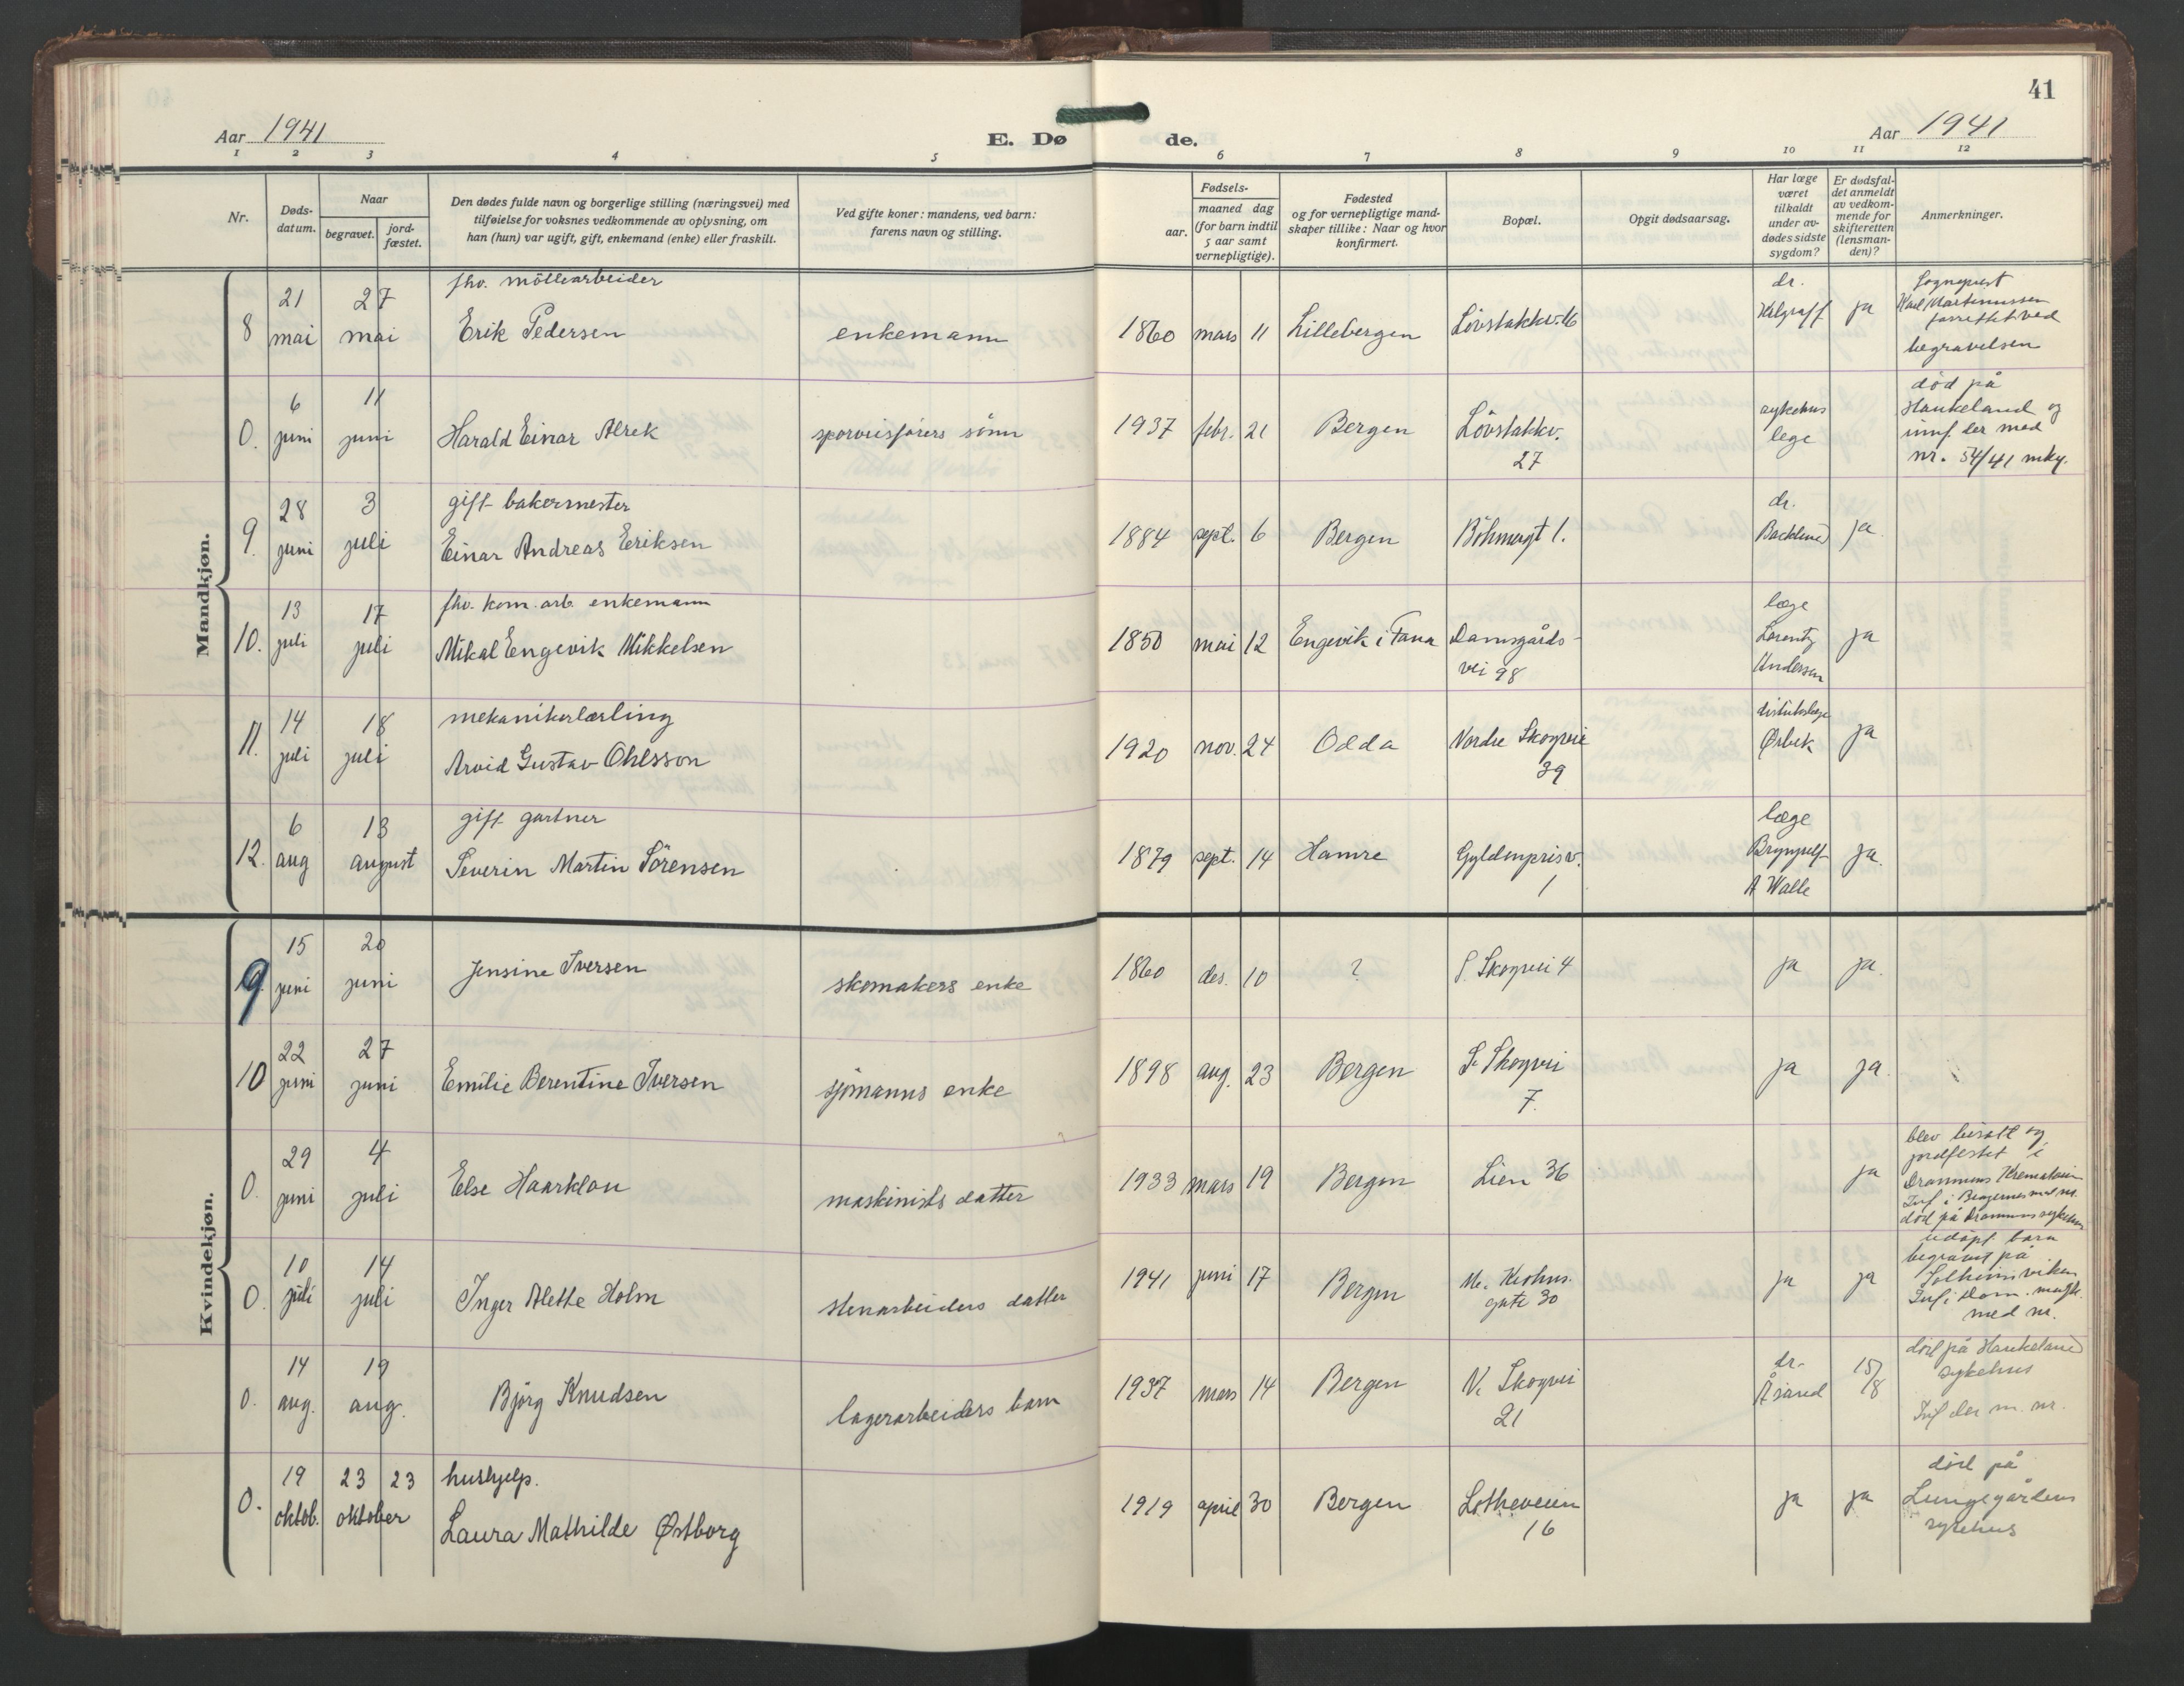 41
Aar 1941
E. Dø
de.
Aar 1941
1 2 3 4 5 6 7 8 9 10 11 12
Nr.
Døds-
datum.
Naar
begravet.
jord-
fæstet.
Den dødes fulde navn og borgerlige stilling (næringsvei) med
tilføielse for voksnes vedkommende av oplysning, om
han (hun) var ugift, gift, enkemand (enke) eller fraskilt.
Ved gifte koner: mandens, ved barn:
farens navn og stilling.
Fødsels-
aar.
maaned dag
(for barn indtil
5 aar samt
vernepligtige).
Fødested
og for vernepligtige mand-
skaper tillike: Naar og hvor
konfirmert.
Bopæl.
Opgit dødsaarsag.
Har læge
været
tilkaldt
under av-
dødes sidste
sygdom?
Er dødsfal-
det anmeldt
av vedkom-
mende for
skifteretten
(lensman-
den)?
Anmerkninger.
Mandkjøn.
8
21
mai
27
mai
fhv. möllearbeider
Erik Pedersen
enkemann
1860 mars 11
Lillebergen
Lövstakkv. 16
dr.
ja
Sogneprest
Karl Martinussen
forrettet ved
begravelsen
0.
6
juni
11
juni
Harald Einar Alrek
sporveisförers sönn
1937 febr. 21
Bergen
Lövstakkv.
27
sykehus
lege
död på
Haukeland og
innf. der med
nr. 54/41 mky.
9.
28
juni
3
juli
gift bakermester
Einar Andreas Eriksen
1884 sept. 6
Bergen
Böhmergt 1.
dr.
Backlund
ja
10.
13
juli
17
juli
fhv. kom. arb. enkemann
Mikal Engevik Mikkelsen
1850 mai 12
Engevik i Fana
Damsgårds-
vei 98
læge
Lorentz
Andersen
ja
11.
14
juli
18
juli
mekanikerlærling
Arvid Gustav Ohlsson
1920 nov. 24
Odda
Nordre Skogvei
39
distriktslæge
Ørbek
ja
12.
6
aug
13
august
gift gartner
Severin Martin Sörensen
1879 sept. 14
Hamre
Gyldenprisv.
1
læge
Brynjulf
A Walle
ja.
Kvindekjøn.
9
15
juni
20
juni
Jensine Iversen
skomakers enke
1860 des. 10
?
S. Skogvei 4
ja
ja.
10
22
juni
27
juni
Emilie Berentine Iversen
sjömanns enke
1898 aug. 23
Bergen
S. Skogvei
7.
ja
ja
0.
29
juni
4
juli
Else Haarklou
maskinists datter
1933 mars 19
Bergen
Lien 36
ja
blev bisatt og
jordfestet i
Drammens Krematorium
Inf i Bragernes med nr.
död på Drammens sykehus
0.
10
juli
14
juli
Inger Alette Holm
stenarbeiders datter
1941 juni 17
Bergen
Ne. Krohns.
gate 30
ja
ja
udöpt barn
begravet på
Solheimsviken
Inf i Dom.
med nr.
0.
14
aug.
19
aug.
Björg Knudsen
lagerarbeiders barn
1937 mars 14
Bergen
N. Skogvei
21
dr.
15/
18
död på Haukeland
sykehus
Inf der m. nr.
0.
19
oktob.
23 23
oktober
hushjelp.
Laura Mathilde Østborg
1919 april 30
Bergen
Lotheveien
16
ja
ja
död på
Lungegårdens
sykehus